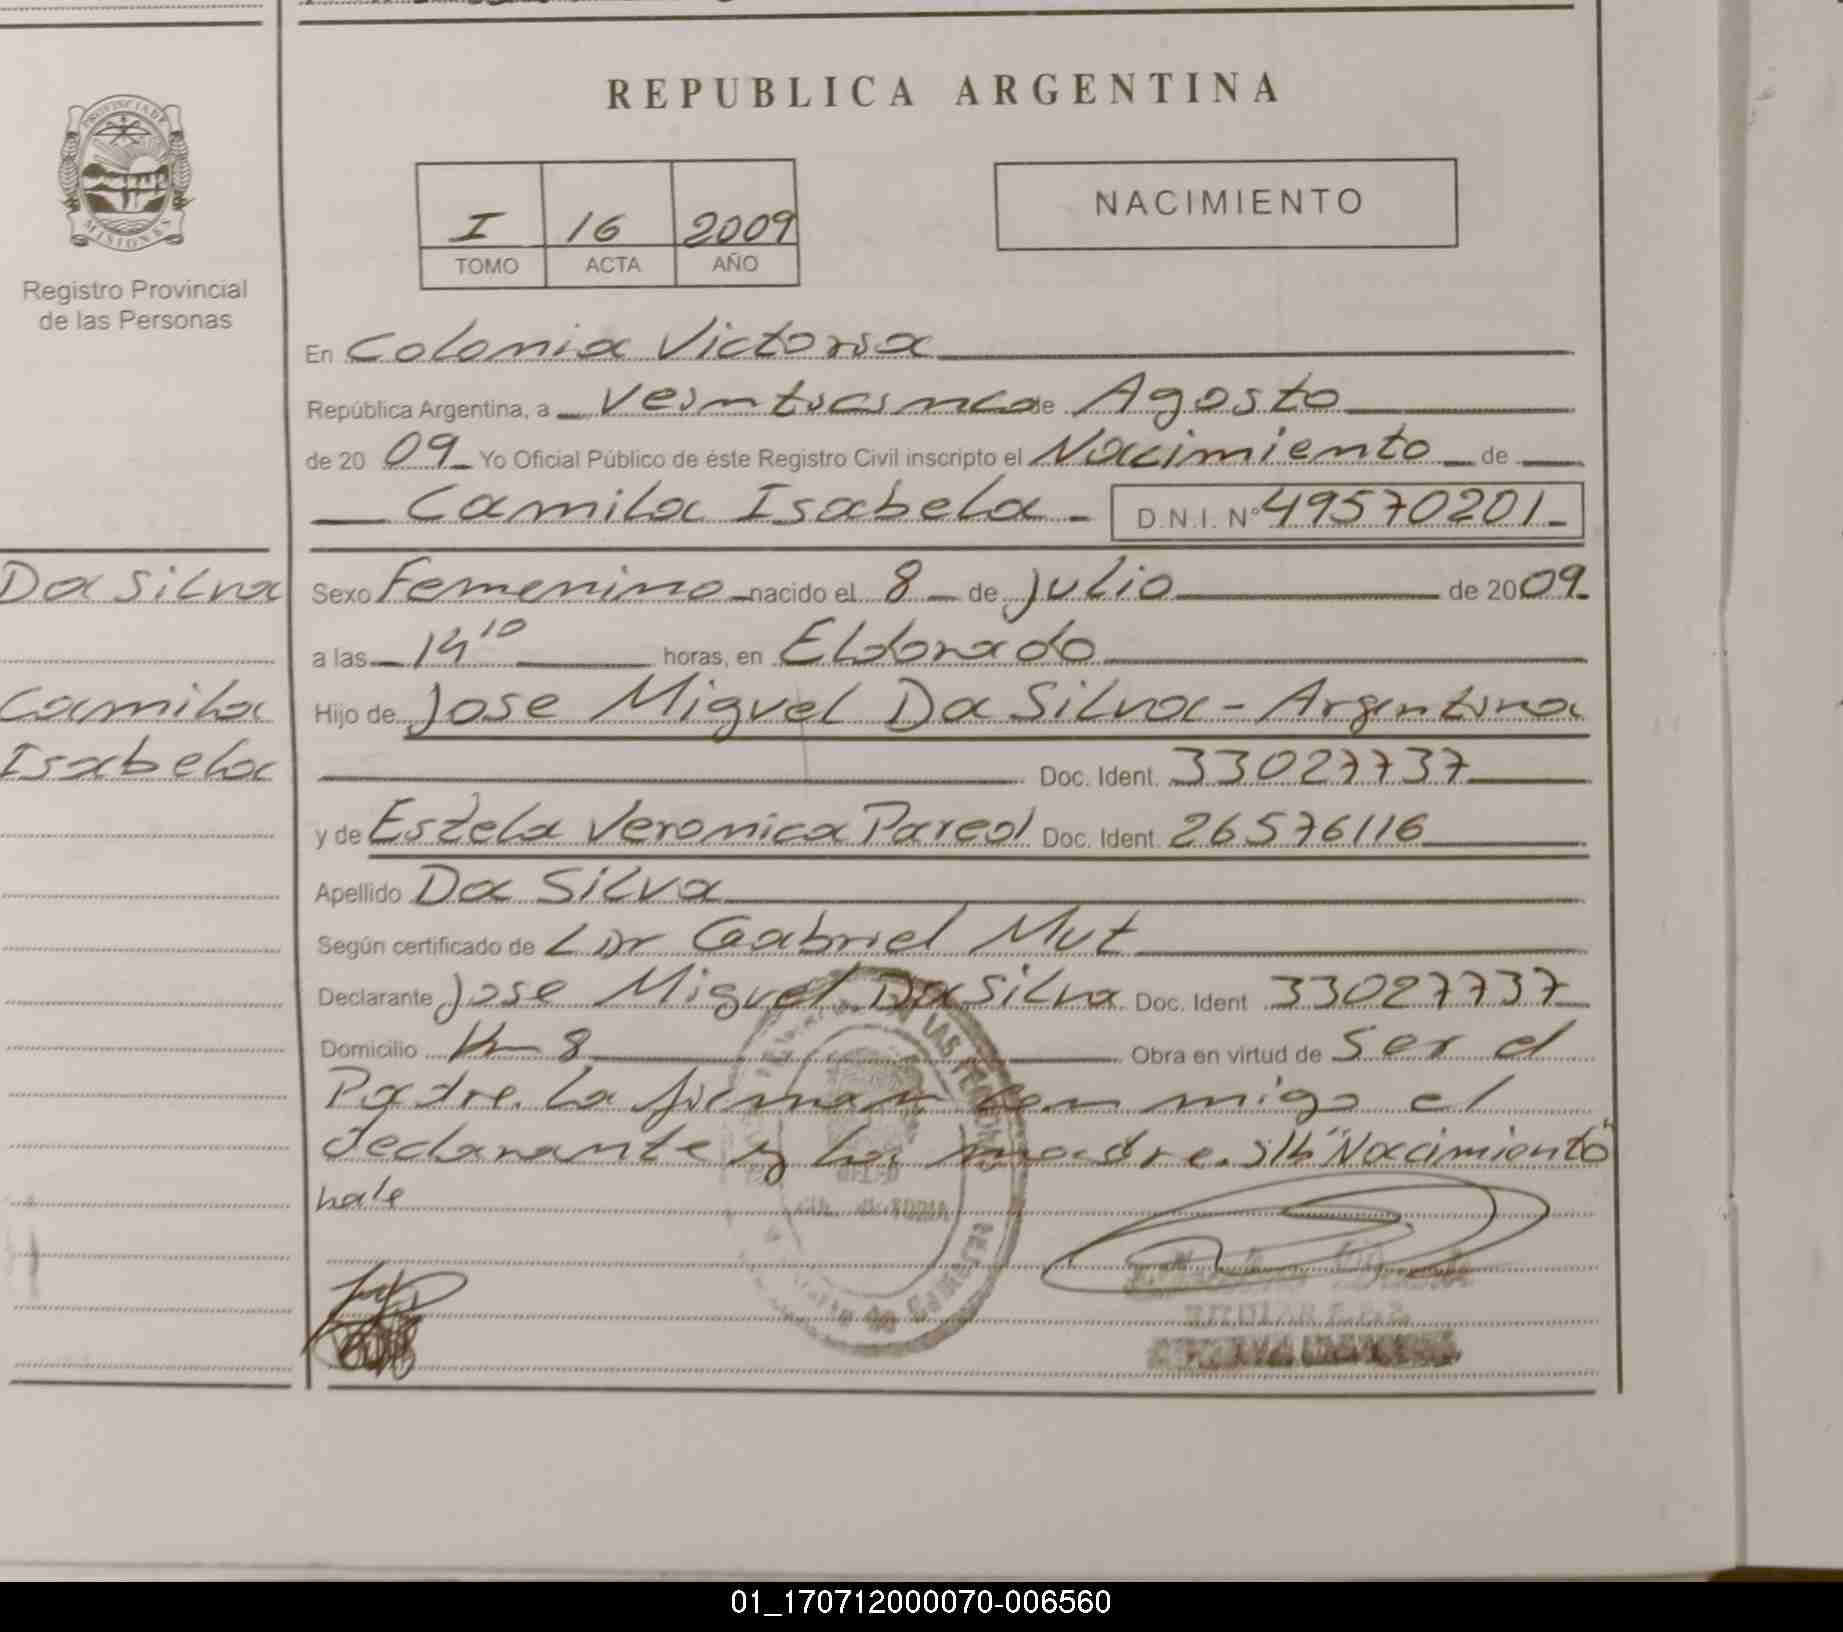 REPUBLICA ARGENTINA
PROVINCIA DE
MISIONES
Registro Provincial
de las Personas
I 16 2009
TOMO ACTA AÑO
NACIMIENTO
En Colonia Victoria
República Argentina, a Veinticinco de Agosto
de 20 09 Yo Oficial Público de éste Registro Civil inscripto el Nacimiento de
Camila Isabela D.N.I. N° 49570201
Da Silva
Camila
Isabela
Sexo Femenino nacido el 8 de Julio de 2009
a las 14 10 horas, en Eldorado
Hijo de Jose Miguel Da Silva - Argentina
Doc. Ident. 33027737
y de Estela Veronica Pared Doc. Ident. 26576116
Apellido Da Silva
Según certificado de Dr Gabriel Mut
Declarante Jose Miguel Da Silva Doc. Ident 33027737
Domicilio Km 8 Obra en virtud de Ser el
Padre. La firman conmigo el
declarante y la madre. "Nacimiento"
vale
01_170712000070-006560